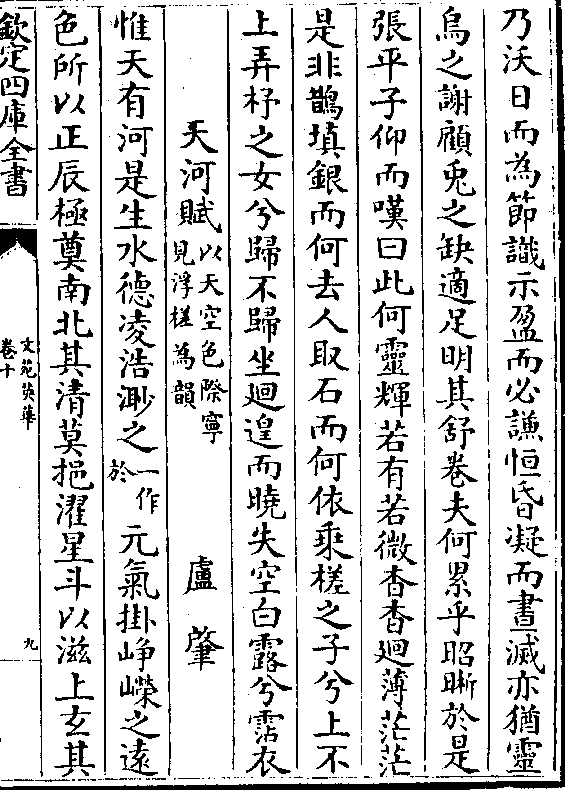 乃沃日而為節識示盈而必謙恒昏凝而晝滅亦猶靈
烏之謝顧兎之缺適足明其舒卷夫何累乎昭晣於是
張平子仰而嘆曰此何靈輝若有若微杳杳廻薄茫茫
是非鵲填銀而何去人取石而何依乘槎之子兮上不
上弄杼之女兮歸不歸坐廻遑而曉失空白露兮霑衣
天河賦以天空色際寧見浮槎為韻 盧肇
惟天有河是生水德凌浩渺之一作於元氣掛崢嶸之遠
色所以正辰極奠南北其清莫挹濯星斗以滋上玄其
欽定四庫全書
文苑英華
卷十
九